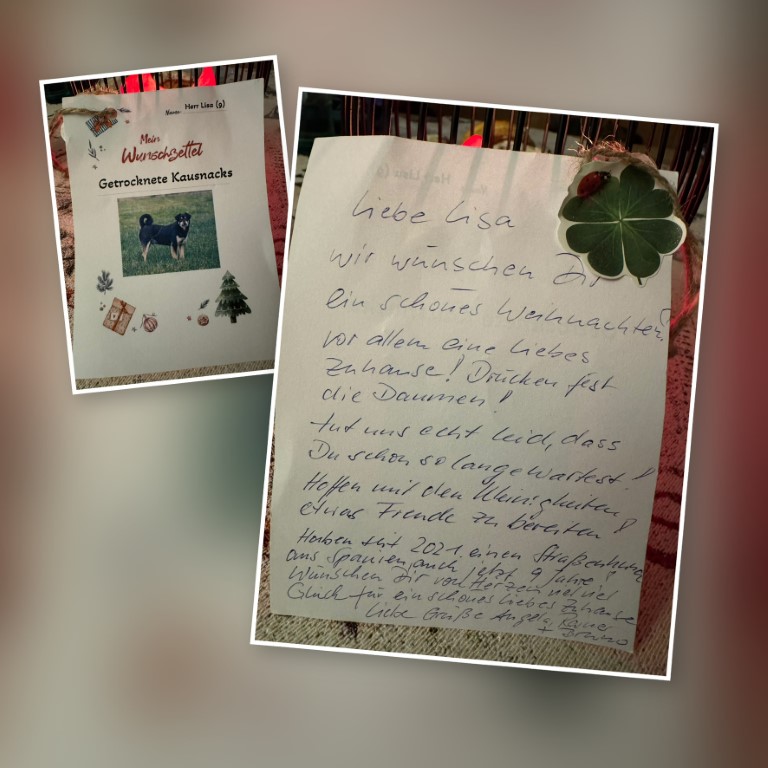 Name: Herr Lisa (9)
Mein
Wunschzettel
Getrocknete Kausnacks
Liebe Lisa
wir wünschen Dir
ein schönes Weihnachten,
vor allem eine liebes
Zuhause! Drücken fest
die Daumen!
tut uns echt leid, dass
Du schon so lange wartest!
Hoffen mit den Kleinigkeiten
etwas Freude zu bereiten!
Haben seit 2021 einen Straßenhund
aus Spanien, auch jetzt 9 Jahre!
Wünschen Dir von Herzen viel
Glück für ein schönes liebes Zuhause
Liebe Grüße Angela, Rainer
+ Bruno